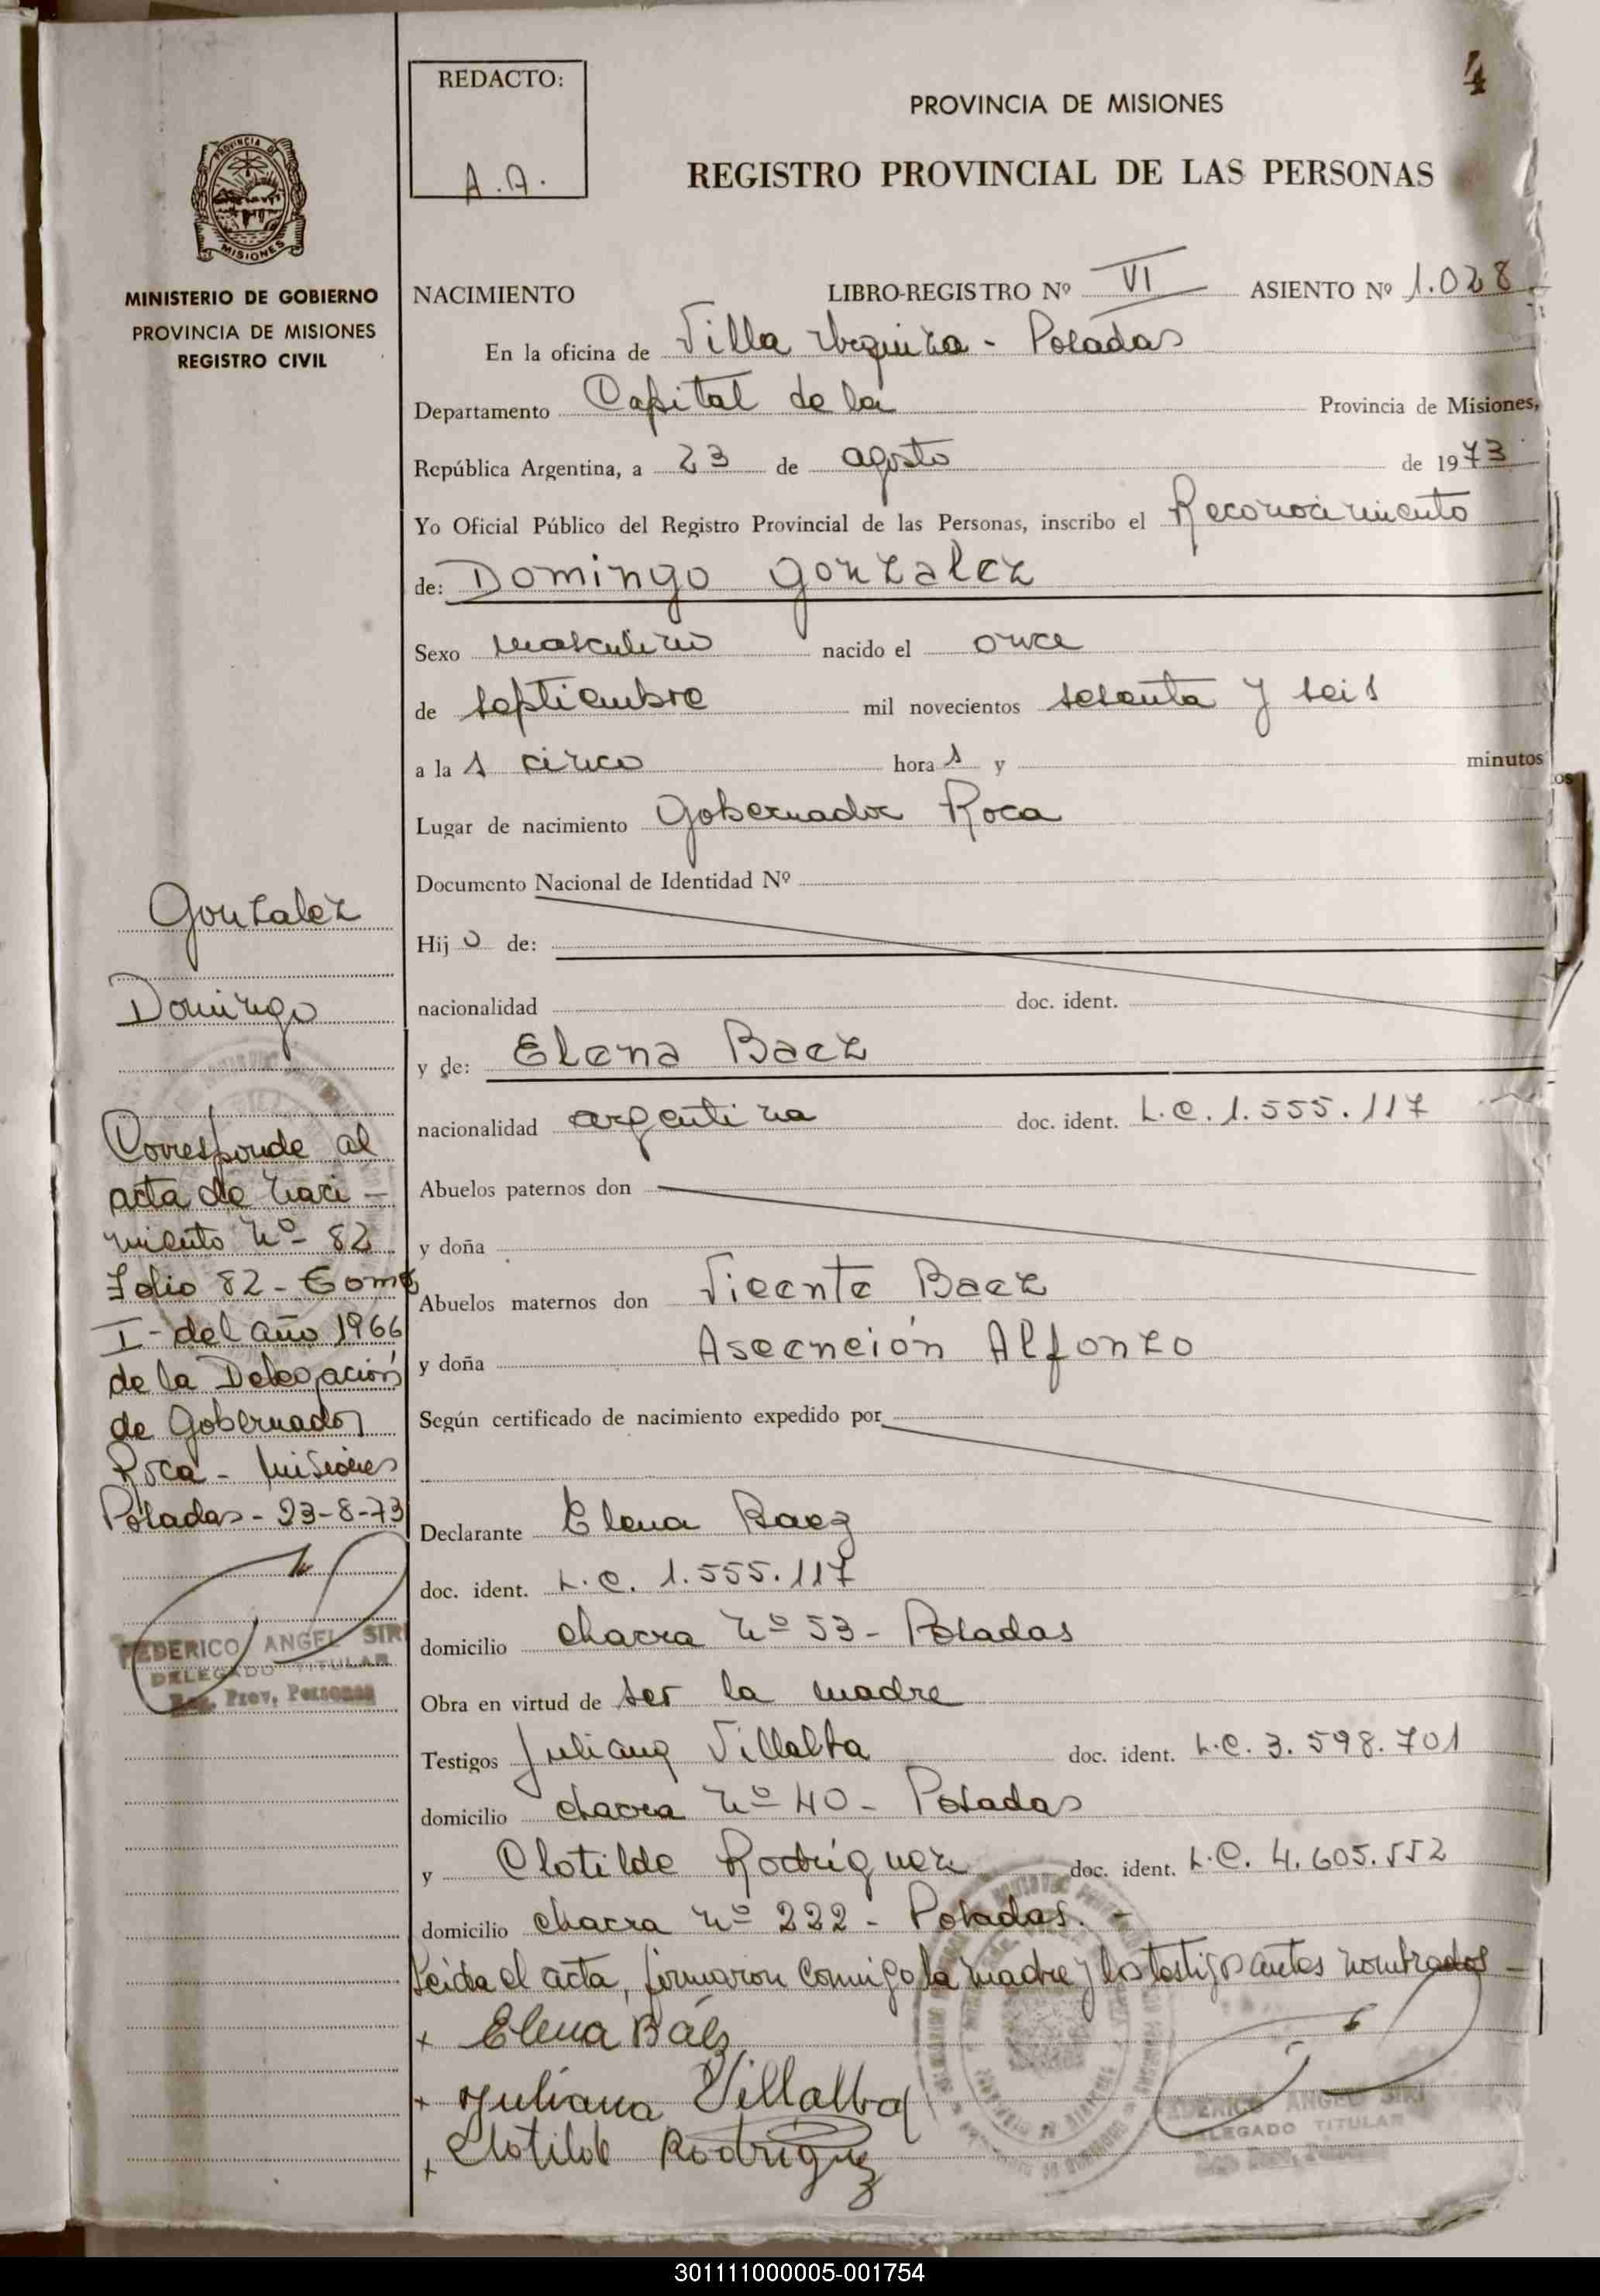 4
REDACTO:
A.A.
PROVINCIA DE MISIONES
REGISTRO PROVINCIAL DE LAS PERSONAS
PROVINCIA DE
MISIONES
MINISTERIO DE GOBIERNO
PROVINCIA DE MISIONES
REGISTRO CIVIL
NACIMIENTO LIBRO-REGISTRO Nº VI ASIENTO Nº 1.028
En la oficina de Villa Urquiza - Posadas
Departamento Capital de la Provincia de Misiones,
República Argentina, a 23 de agosto de 1973
Yo Oficial Público del Registro Provincial de las Personas, inscribo el Reconocimiento
de: Domingo Gonzalez
Sexo masculino nacido el once
de septiembre mil novecientos sesenta y seis
a la s cinco hora s y minutos
Lugar de nacimiento Gobernador Roca
Documento Nacional de Identidad Nº
Hij o de:
nacionalidad doc. ident.
y de: Elena Baez
nacionalidad argentina doc. ident. L.C. 1.555.117
Abuelos paternos don
y doña
Abuelos maternos don Vicente Baez
y doña Asecneión Alfonzo
Según certificado de nacimiento expedido por
Declarante Elena Baez
doc. ident. L.C. 1.555.117
domicilio chacra nº 53 - Posadas
Obra en virtud de ser la madre
Testigos Juliana Villalba doc. ident. L.C. 3.598.701
domicilio chacra nº 40 - Posadas
y Clotilde Rodriguez doc. ident. L.C. 4.605.552
domicilio chacra nº 222 - Posadas. -
Leida el acta, firmaron conmigo la madre y los testigos antes nombrados -
+ Elena Báes
+ Juliana Villalba
+ Clotilde Rodriguez
Gonzalez
Domingo
Corresponde al
acta de naci -
miento nº 82
Folio 82 - Tomo
I - del año 1966
de la Delegación
de Gobernador
Roca - Misiones
Posadas - 23-8-73
FEDERICO ANGEL SIRI
DELEGADO TITULAR
Reg. Prov. Personas
FEDERICO ANGEL SIRI
DELEGADO TITULAR
301111000005-001754